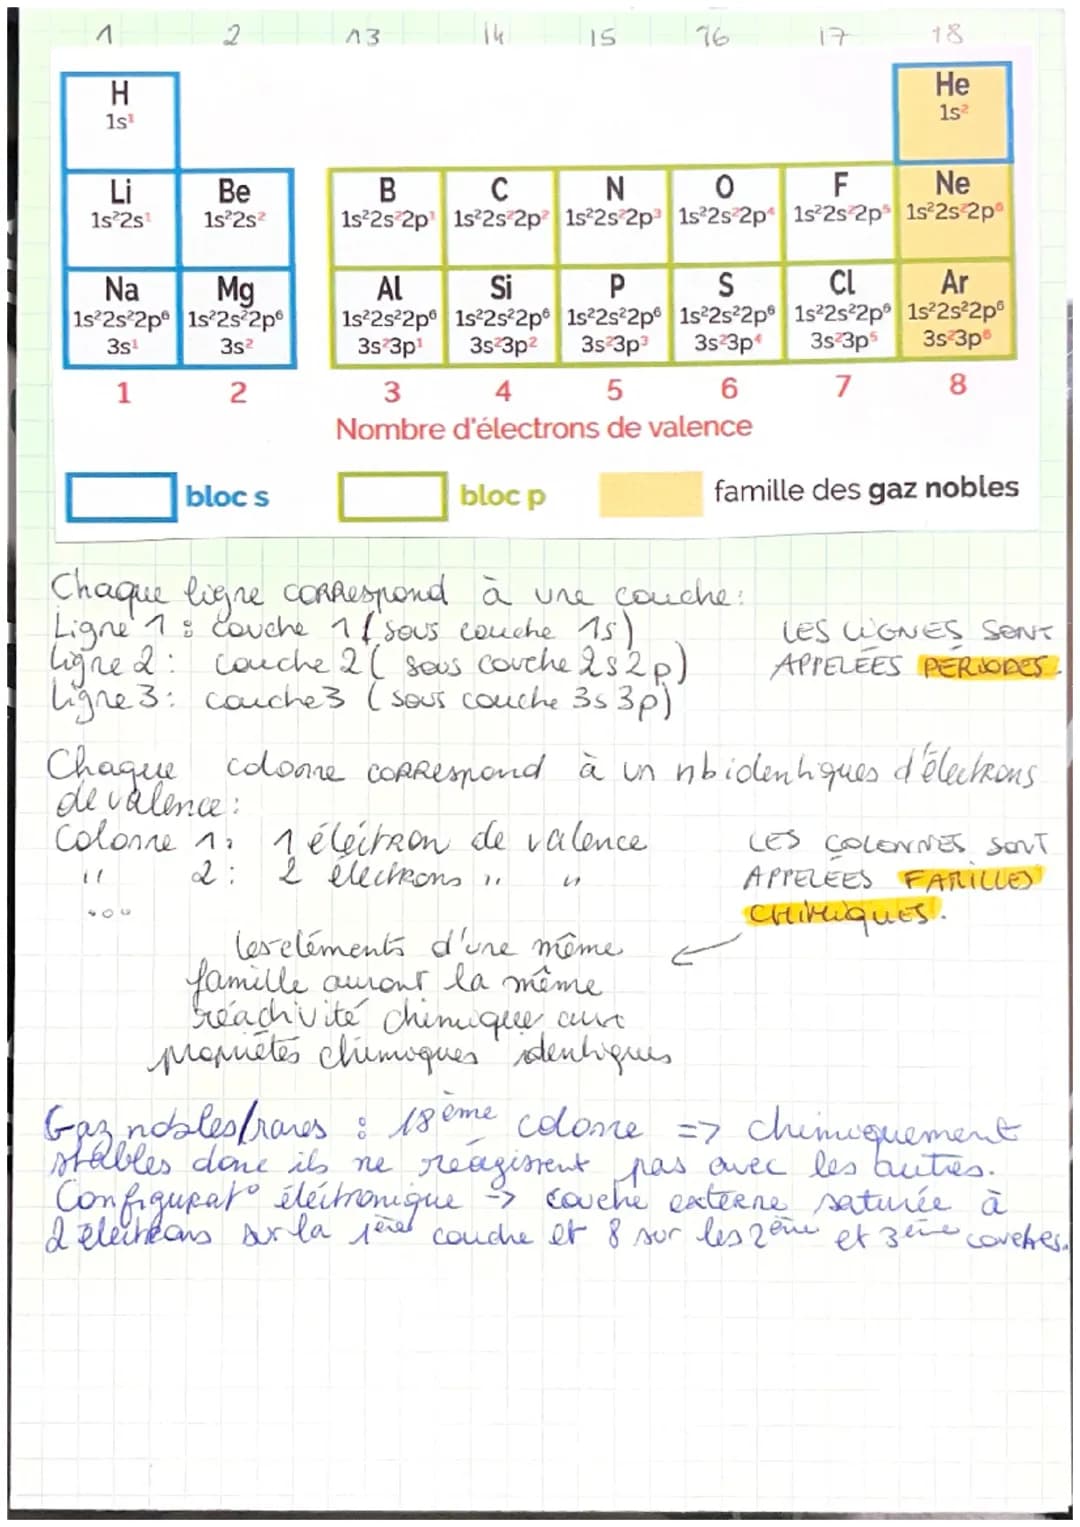 1 2 13 14 15 16 17 18
H He
1s¹ 1s²
Li Be B C N O F Ne
1s²2s¹ 1s²2s² 1s²2s²2p¹ 1s²2s²2p² 1s²2s²2p³ 1s²2s²2p⁴ 1s²2s²2p⁵ 1s²2s²2p⁶
Na Mg Al Si P S Cl Ar
1s²2s²2p⁶ 1s²2s²2p⁶ 1s²2s²2p⁶ 1s²2s²2p⁶ 1s²2s²2p⁶ 1s²2s²2p⁶ 1s²2s²2p⁶ 1s²2s²2p⁶
3s¹ 3s² 3s²3p¹ 3s²3p² 3s²3p³ 3s²3p⁴ 3s²3p⁵ 3s²3p⁶
1 2 3 4 5 6 7 8
Nombre d'électrons de valence
bloc s bloc p famille des gaz nobles
Chaque ligne correspond à une couche :
Ligne 1 : couche 1 (sous couche 1s)
ligne 2 : couche 2 ( sous couche 2s 2p)
ligne 3 : couche 3 (sous couche 3s 3p)
LES LIGNES SONT
APPELÉES PÉRIODES.
Chaque colonne correspond à un nb identiques d'électrons
de valence :
Colonne 1 : 1 électron de valence
" 2 : 2 électrons " "
...
LES COLONNES SONT
APPELÉES FAMILLES
CHIMIQUES.
les éléments d'une même
famille auront la même
réactivité chimique aux
propriétés chimiques identiques
Gaz nobles/rares : 18ème colonne => chimiquement
stables donc ils ne réagissent pas avec les autres.
Configurat° éléctronique -> couche externe saturée à
2 électrons sur la 1ère couche et 8 sur les 2ème et 3ème couches.